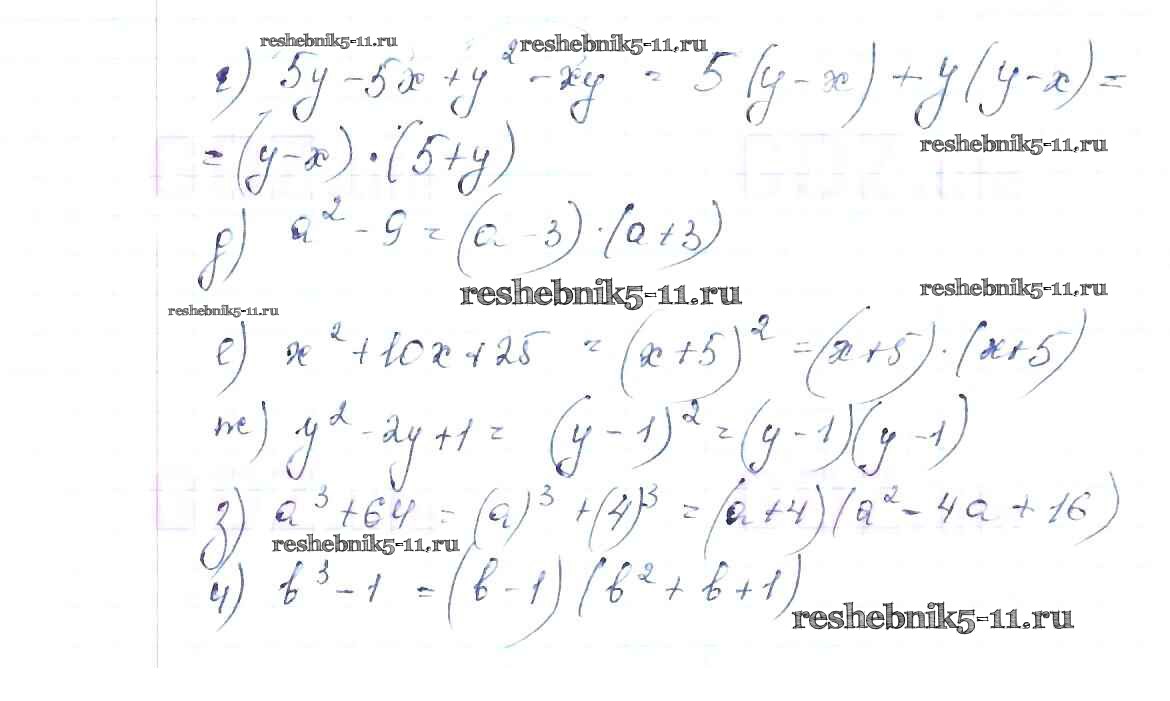 reshebnik5-11.ru
reshebnik5-11.ru
г) 5y - 5x + y² - xy = 5 (y - x) + y (y - x) =
reshebnik5-11.ru
= (y - x) · (5 + y)
д) a² - 9 = (a - 3) · (a + 3)
reshebnik5-11.ru
reshebnik5-11.ru
reshebnik5-11.ru
е) x² + 10x + 25 = (x + 5)² = (x + 5) · (x + 5)
ж) y² - 2y + 1 = (y - 1)² = (y - 1)(y - 1)
з) a³ + 64 = (a)³ + (4)³ = (a + 4)(a² - 4a + 16)
reshebnik5-11.ru
и) b³ - 1 = (b - 1) (b² + b + 1)
reshebnik5-11.ru